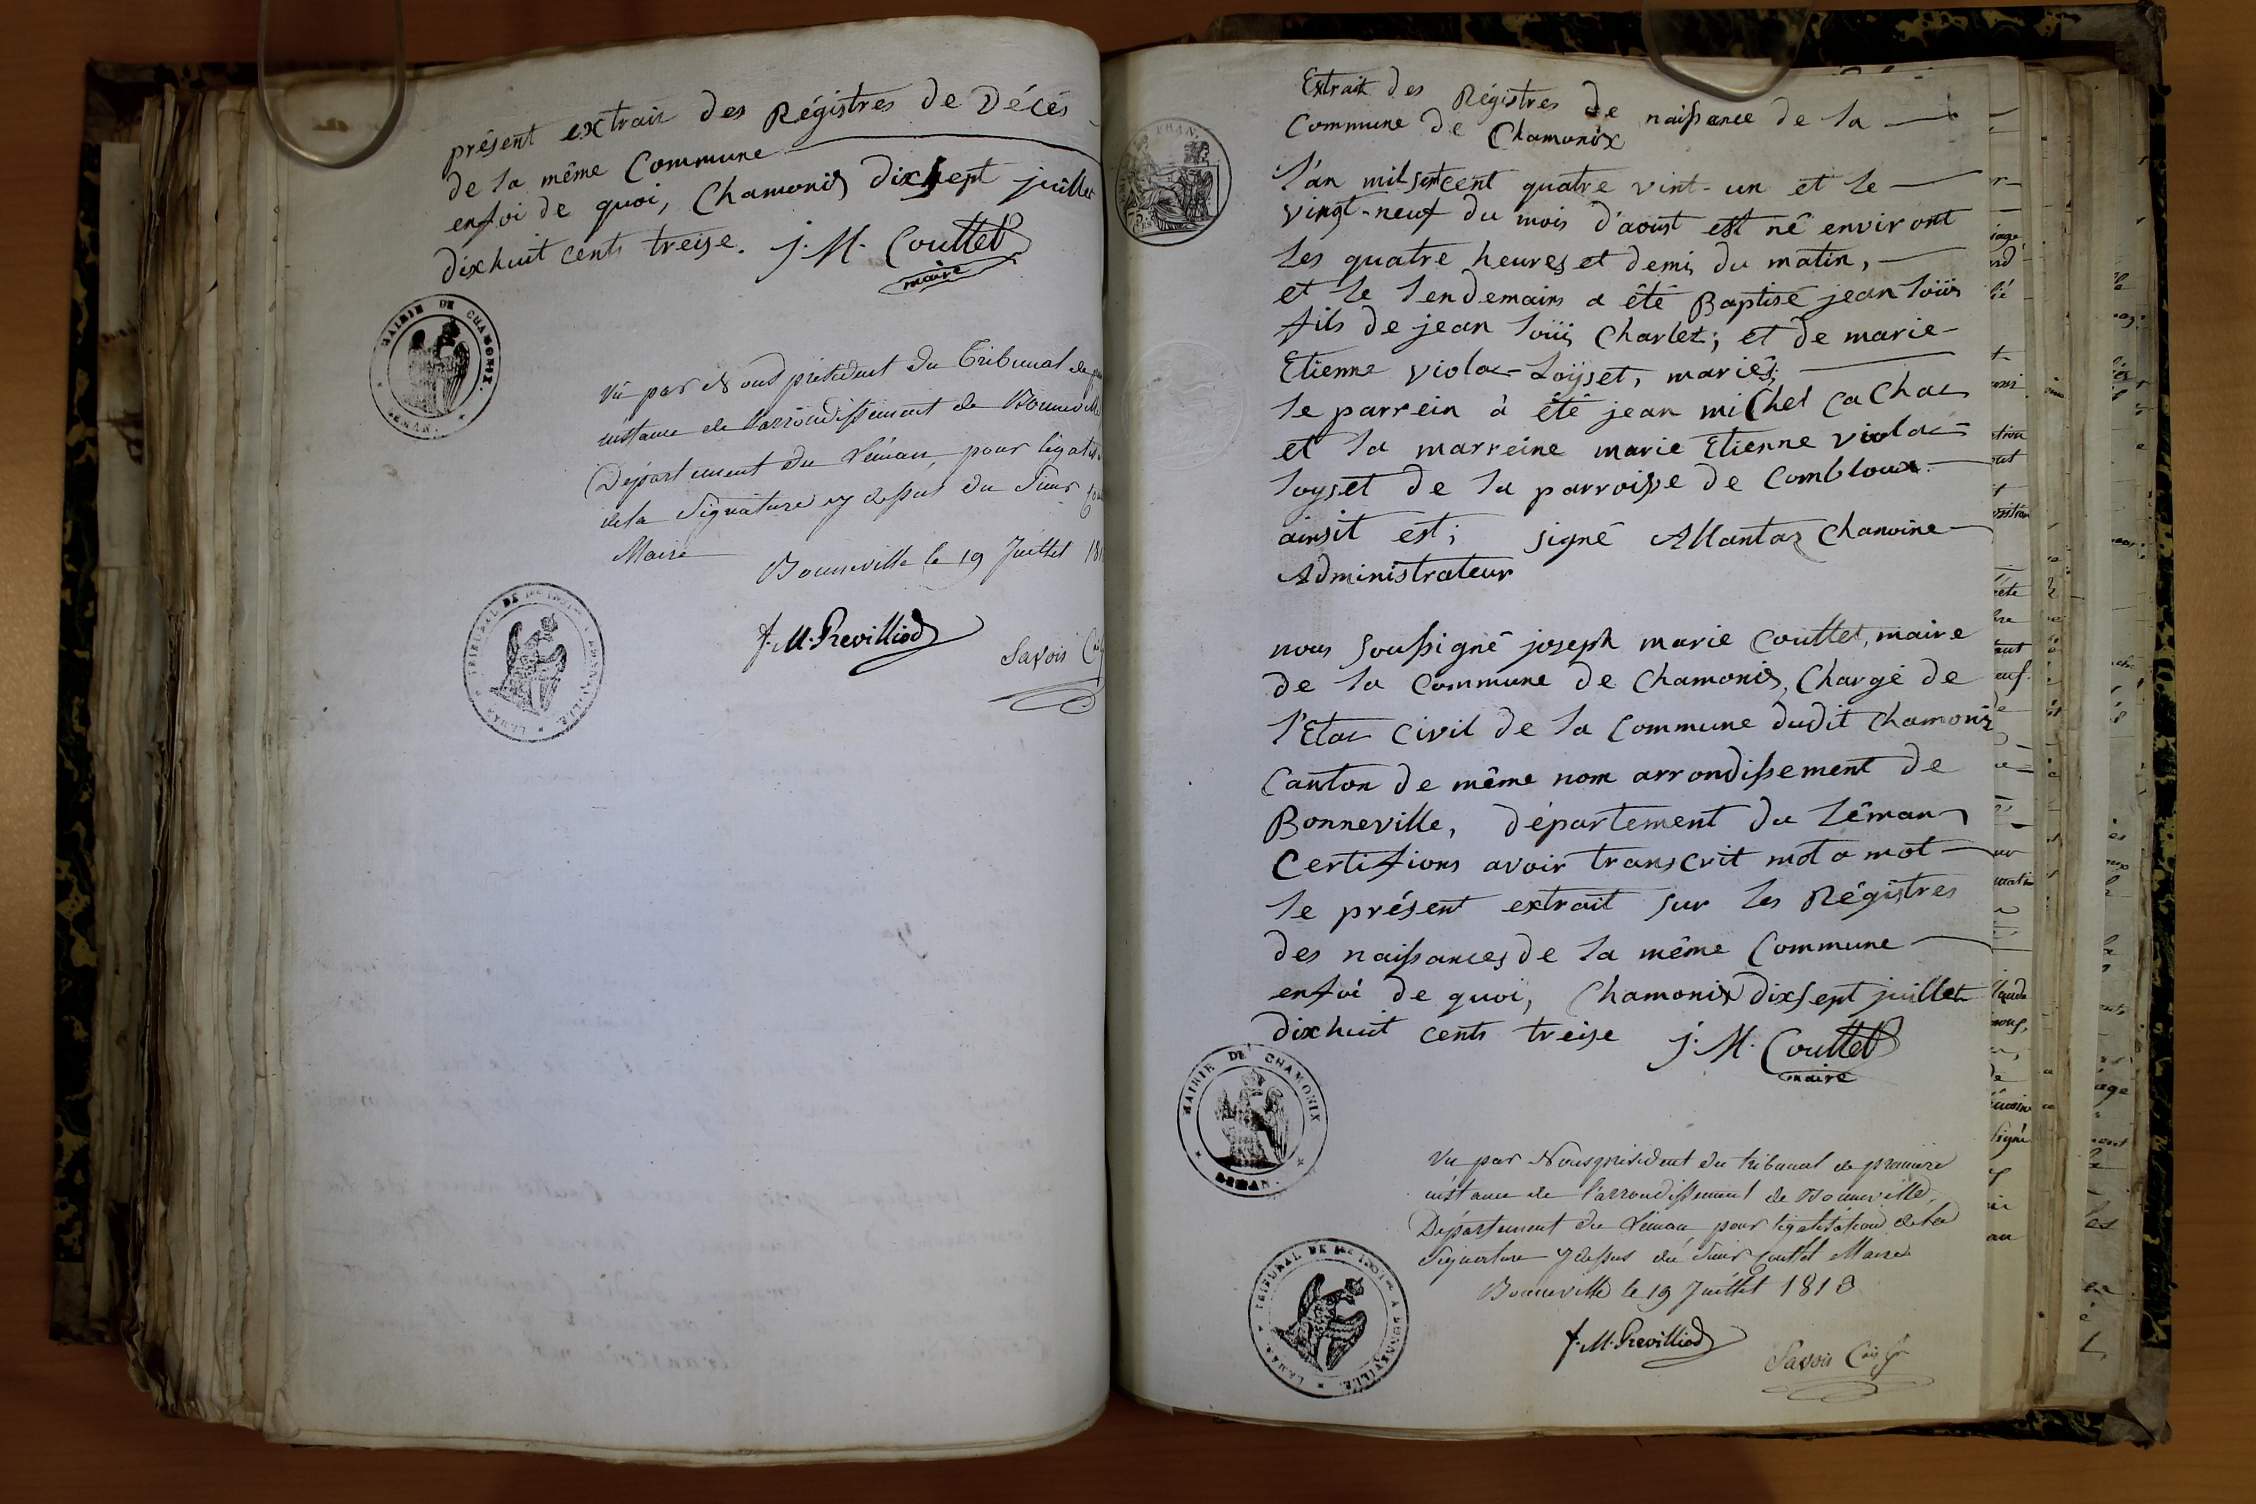 présent extrait des Régistres de Décés
de la même Commune
enfoi de quoi, Chamonix dixsept juillet
dixhuit cents treise. J. M. Couttet
maire
MAIRIE DE CHAMONIX.
LEMAN.
Vu par Nous président du Tribunal de
instance de l'arrondissement de Bonneville
Département du Léman, pour légalis
de la signature cy dessus du Sieur
Maire
Bonneville le 19 Juillet 181
TRIBUNAL DE 1ere INST.ce A BONNEVILLE.
LEMAN.
J. M. Previlliod
Savois
Extrait des Régistres de naissance de la
Commune de Chamonix
l'an mil septcent quatre vint-un et le
vingt-neuf du mois d'aoust est né environt
les quatre heures et demi du matin,
et le lendemains a été Baptisé jean loüis
fils de jean loüis Charlet; et de marie
Etienne violat-Loÿset, mariés;
le parrein à été jean miChel CaChat
et la marreine marie Etienne violat
loyset de la parroisse de Combloux.
ainsit est; signé Allantaz Chanoine
Administrateur
nous soussigné joseph marie Couttet, maire
de la Commune de Chamonix, Chargé de
l'Etat Civil de la Commune dudit Chamonix
Canton de même nom arrondissement de
Bonneville, département du Léman
Certifions avoir transcrit mot a mot
le présent extrait sur les Régistres
des naissances de la même Commune
enfoi de quoi, Chamonix dixsept juillet
dixhuit cents treise J. M. Couttet
maire
MAIRIE DE CHAMONIX
LEMAN.
Vu par Nous président du tribunal de premiere
instance de l'arrondissement de Bonneville,
Département du Léman pour légalisation de la
Signature cy dessus du Sieur Couttet Maire
Bonneville le 19 Juillet 1813
TRIBUNAL DE 1ere INST.ce A BONNEVILLE.
LEMAN.
J. M. Previlliod
Savois